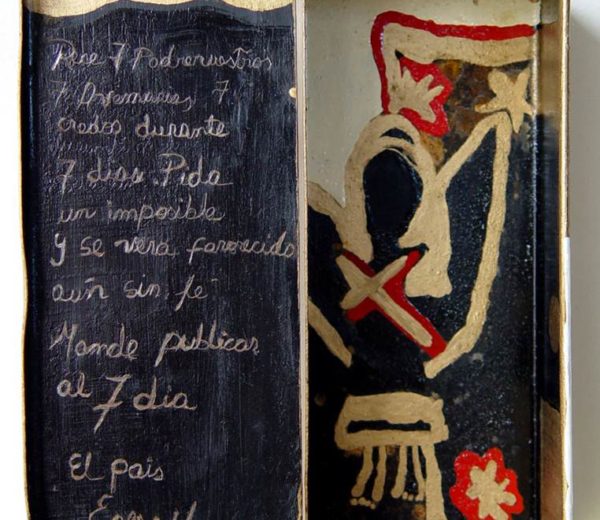 Rece 7 Padrenuestros
7 Avemarias 7
credos durante
7 dias Pida
un imposible
y se verá favorecido
aún sin fé
Mande publicar
al 7 dia
El pais